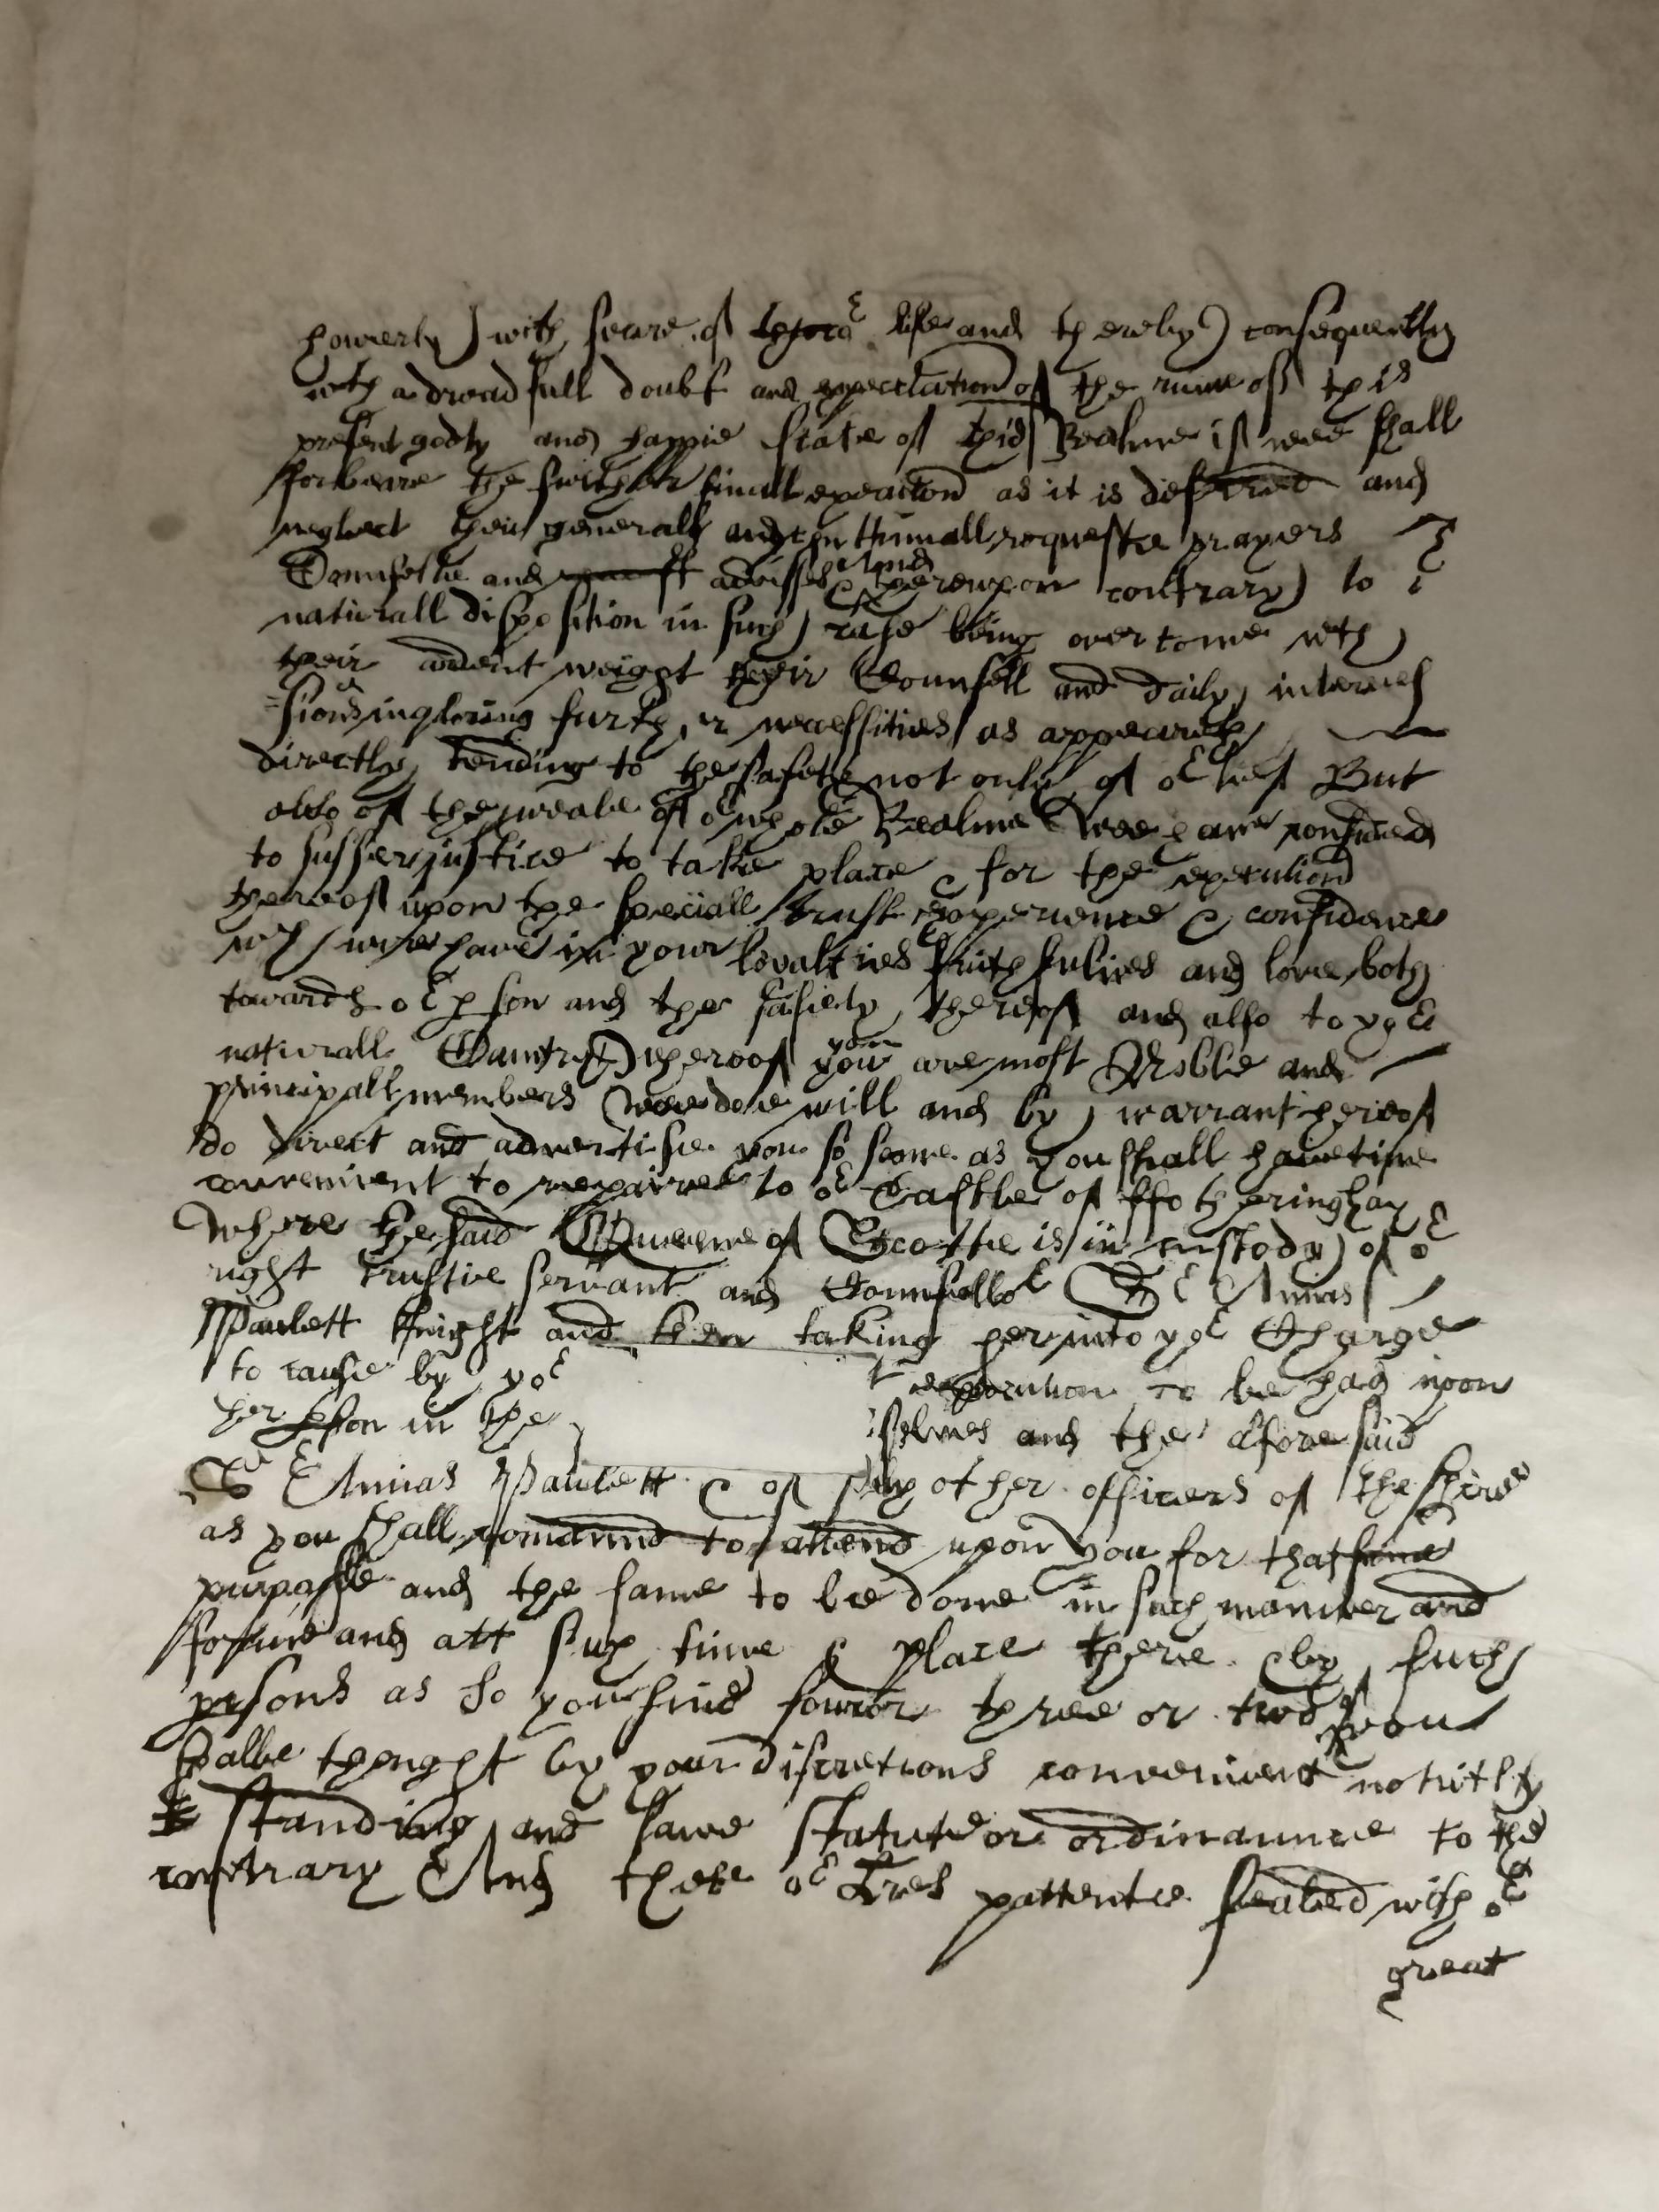 howerly with feare of life and thereby consequently
wth a dreadfull doubt and expectation of the ruine off this
present godly and happie state of this Realme if wee shall
forbeare the further finall execucion as it is desired and
neglect their generall and contynuall requeste prayers
Counselle and advisse thereupon contrary to
naturall disposition in such case being overcome wth
their ardent weight their Counsell and daily interces
=sions furth er necessities as appeareth
directly tending to the safetie not only of or self But
also of the weale of or whole Realme Wee have
to suffer justice to take place & for the execution
thereof upon the speciall trust experience & confidence
wch wee have in your loyalties faithfulnes and love both
towards or pson and the safiety thereof and also to yor
naturall Cuntry whereof you are most Noble and
principall members Wee doe will and by warrant hereof
do direct and advertise you so soone as you shall have time
convenient to repaire to or Castle of ffotheringhay
Where the said Queene of Scotte is in custody of or
right trustie servant and Counsellor Sr Amias
Pawlett Knight and then taking her into yor Charge
to cause by yor execution to be had upon
her pson in the selves and the afore said
Sr Amias Pawlett & of such other officers of the shire
as you shall comannd to attend upon you for that
purposse and the same to be done in such manner and
forme and att such time & place there & by such
psons as to you five fower three or two of you
shalbe thought by your discretions convenient notwith
standing and lawe statute or ordinaunce to the
contrary And these or Lres pattente sealed with or
great